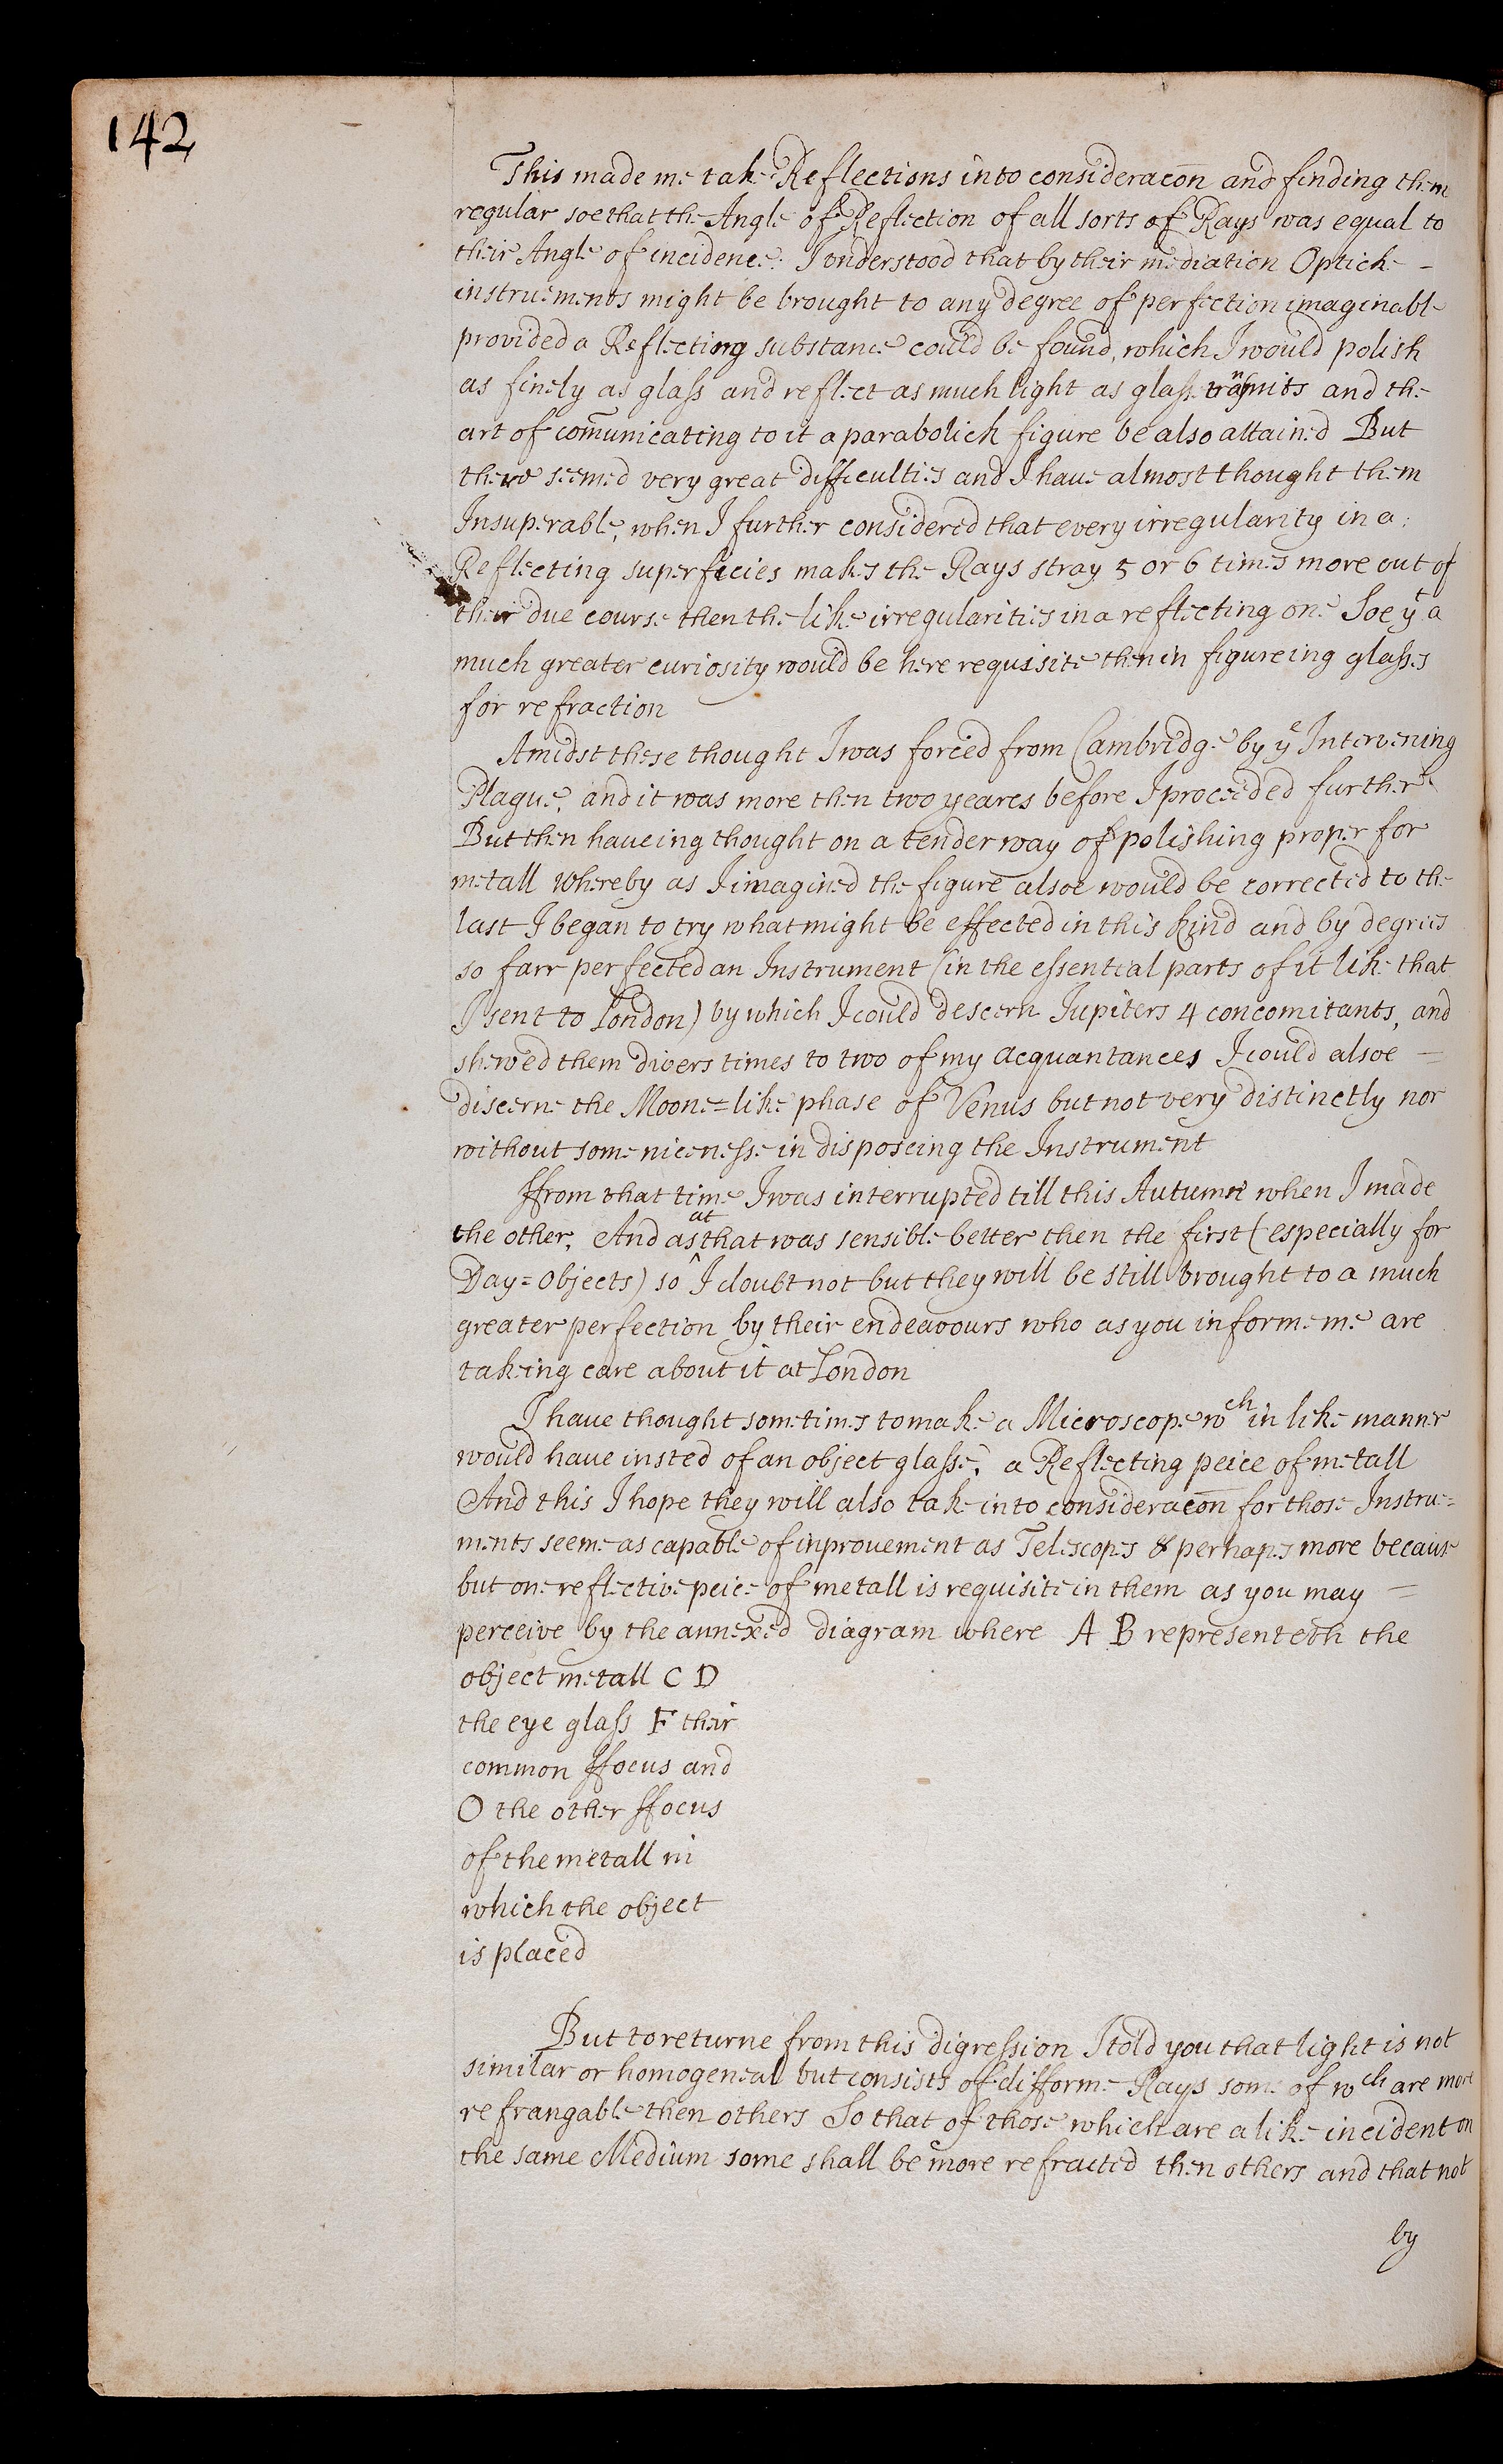 142
This made me take Reflections into consideracōn and finding them
regular soe that the Angle of Reflection of all sorts of Rays was equal to
their Angle of incidence. I understood that by their mediation Optick -
instruements might be brought to any degree of perfection imaginable
provided a Reflecting substance could be found, which I would polish
as finely as glass and reflect as much light as glass transmits and the
art of com̄unicating to it a parabolick figure be also attained But
there seemed very great difficulties and I have almost thought them
Insuperable, when I further considered that every irregularity in a
Reflecting superficies makes the Rays stray 5 or 6 times more out of
their due course then the like irregularities in a reflecting one Soe yt a
much greater curiosity would be here requisite then in figureing glasses
for refraction
Amidst these thought I was forced from Cambridge by ye Intervening
Plague, and it was more then two yeares before I proceeded further
But then haveing thought on a tender way of polishing proper for
metall whereby as I imagined the figure alsoe would be corrected to the
last I began to try what might be effected in this kind and by degrees
so farr perfected an Instrument (in the essential parts of it like that
I sent to London) by which I could descern Jupiters 4 concomitants, and
shewed them divers times to two of my acquantances I could alsoe =
discerne the Moone=like phase of Venus but not very distinctly nor
without some nicenesse in disposeing the Instrument
ffrom that time I was interrupted till this Autumn when I made
the other. And as that was sensible better then the first (especially for
at
Day=Objects) so I doubt not but they will be still brought to a much
greater perfection by their endeavours who as you informe me are
takeing care about it at London
I have thought sometimes to make a Microscope wch in like manner
would have insted of an object glasse, a Reflecting peice of metall
And this I hope they will also take into consideracōn for those Instrue=
ments seeme as capable of inprouement as Telescopes & perhapes more because
but one reflective peice of metall is requisite in them as you may =
perceive by the annexed diagram where A B representeth the
object metall C D
the eye glass F their
common ffocus and
O the other ffocus
of the metall in
which the object
is placed
But to returne from this digression I told you that light is not
similar or homogeneal but consists of difforme Rays some of wch are more
refrangable then others So that of those which are alike incident on
the same Medium some shall be more refracted then others and that not
by